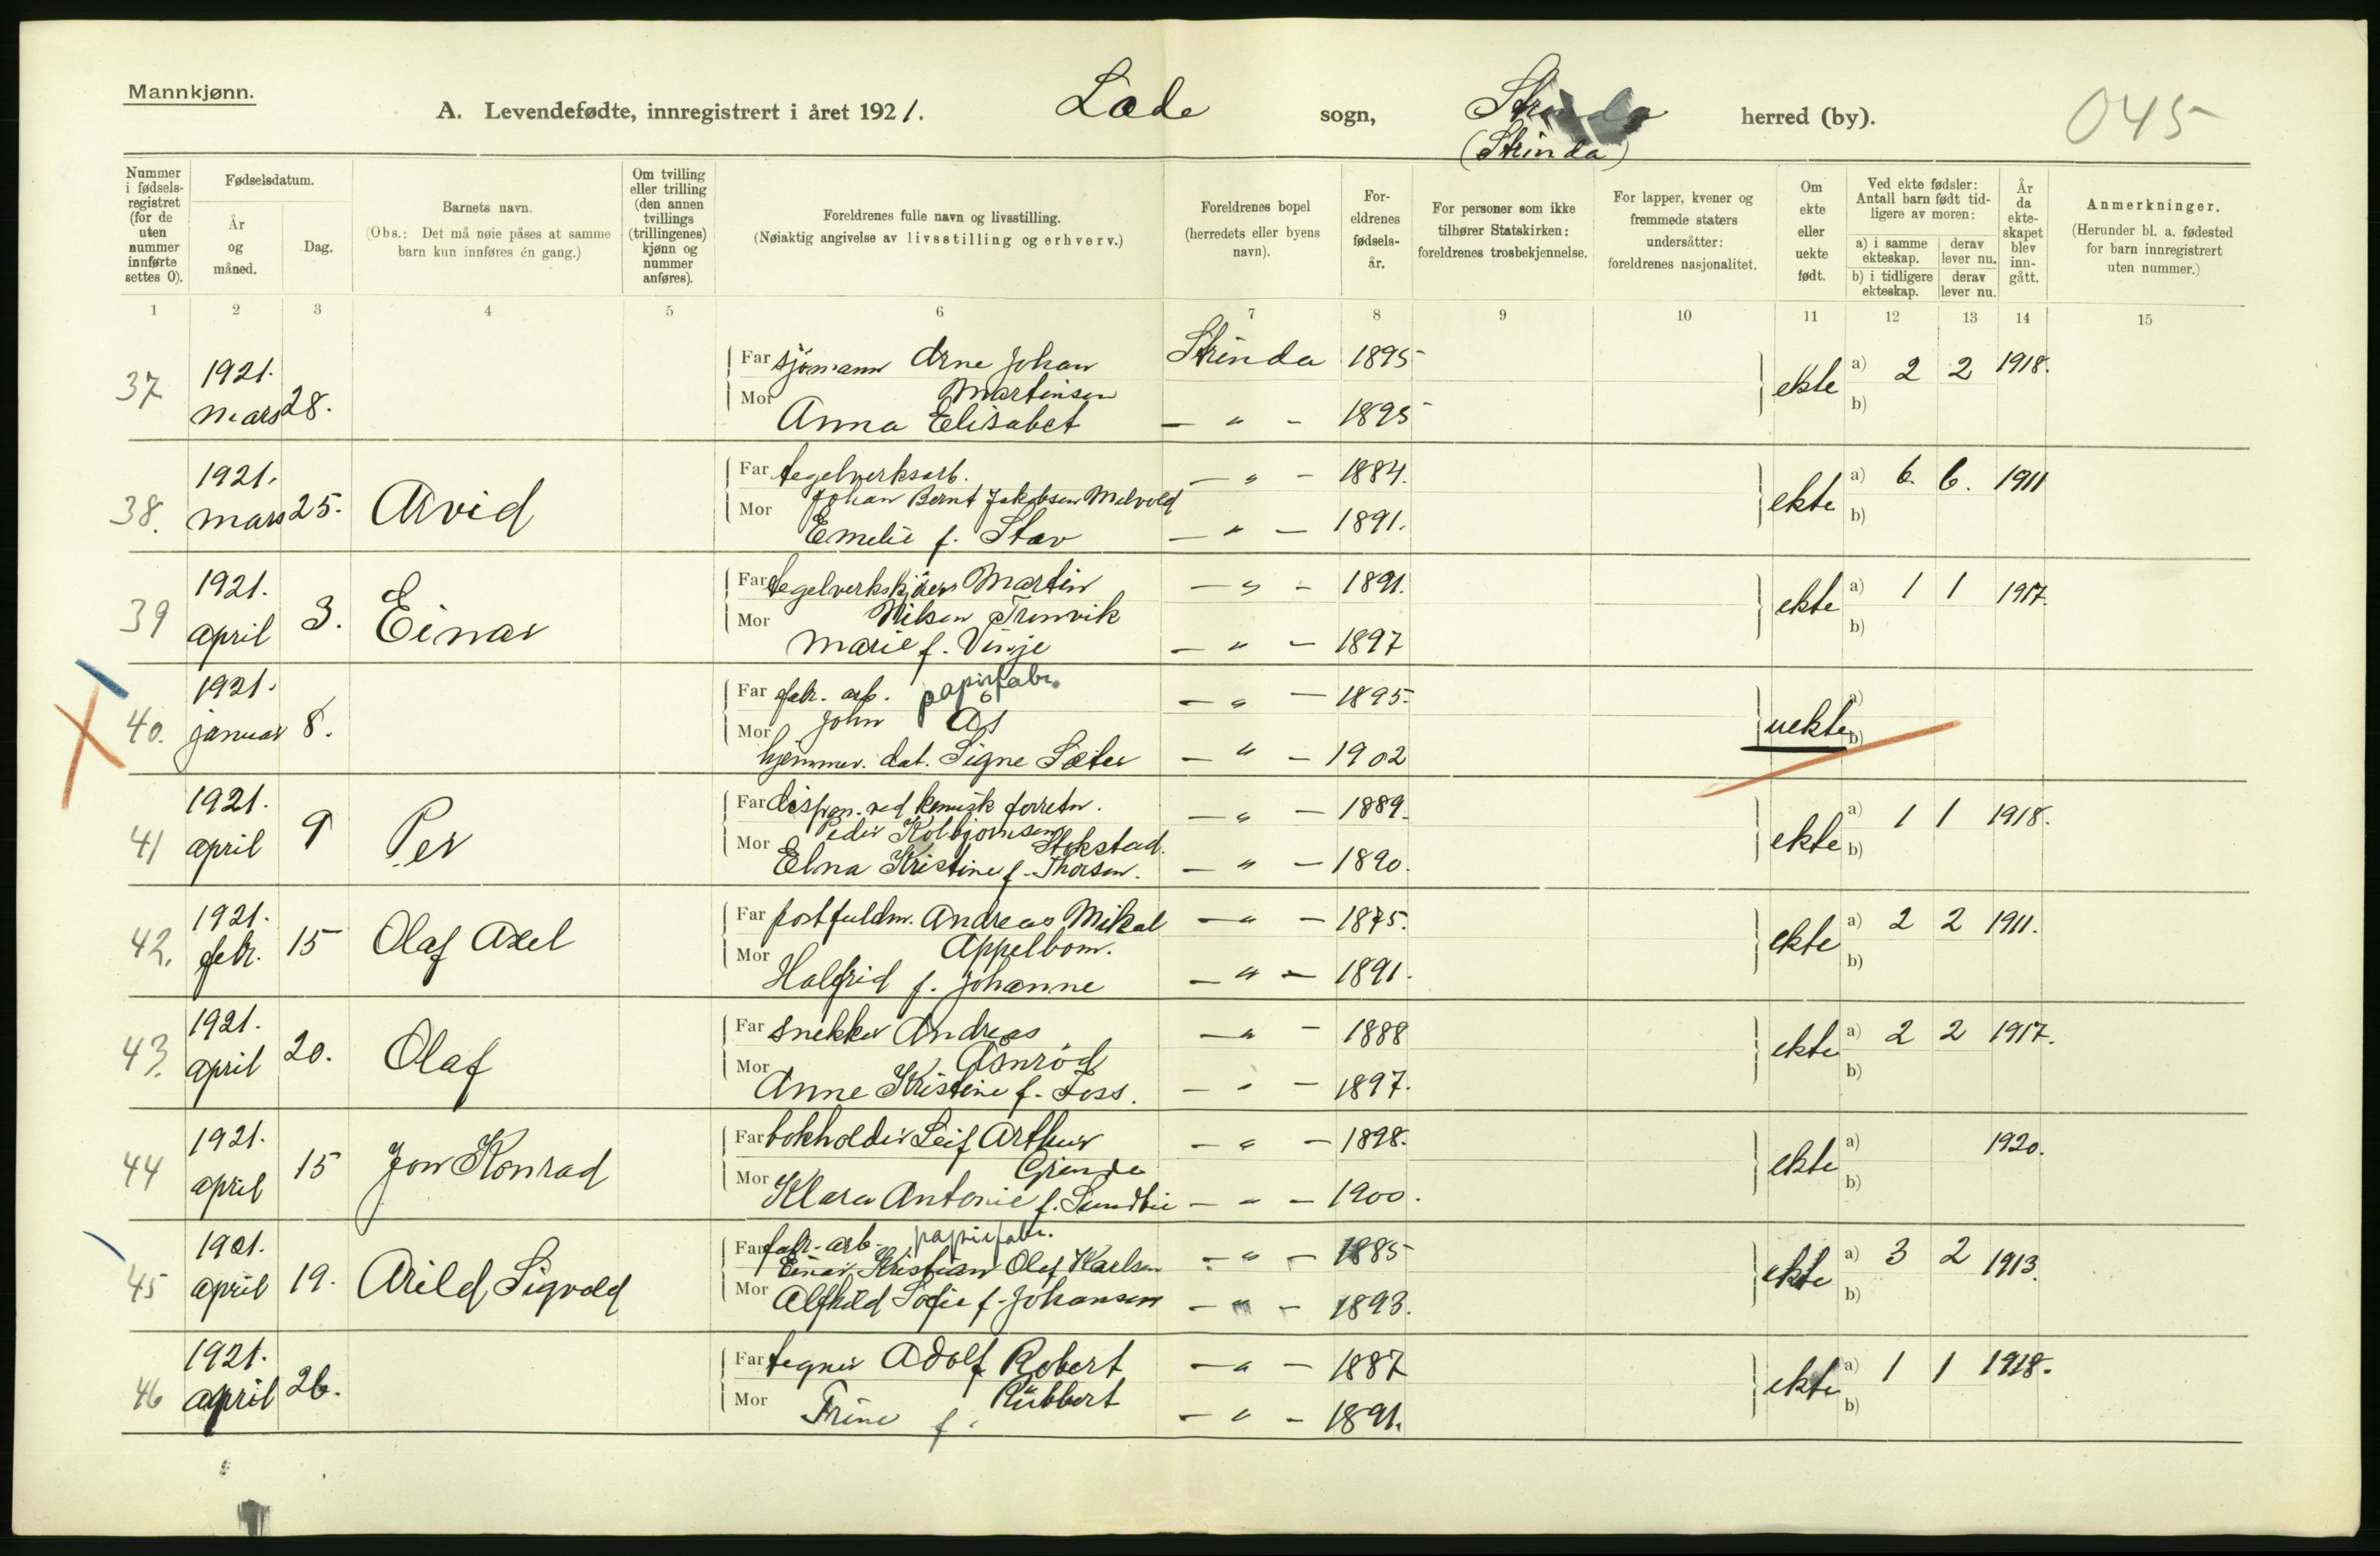 Mannkjønn.
A. Levendefødte, innregistrert i året 1921. Lade sogn, Strinda herred (by). 045
(Strinda)
Nummer i fødsels-registret (for de uten nummer innførte settes 0).
Fødselsdatum.
År og måned.
Dag.
Barnets navn.
(Obs.: Det må nøie påses at samme barn kun innføres én gang.)
Om tvilling eller trilling (den annen tvillings (trillingenes) kjønn og nummer anføres).
Foreldrenes fulle navn og livsstilling.
(Nøiaktig angivelse av livsstilling og erhverv.)
Foreldrenes bopel (herredets eller byens navn).
For-eldrenes fødsels-år.
For personer som ikke tilhører Statskirken: foreldrenes trosbekjennelse.
For lapper, kvener og fremmede staters undersåtter: foreldrenes nasjonalitet.
Om ekte eller uekte født.
Ved ekte fødsler: Antall barn født tid-ligere av moren:
a) i samme ekteskap. derav lever nu.
b) i tidligere ekteskap. derav lever nu.
År da ekte-skapet blev inn-gått.
Anmerkninger.
(Herunder bl. a. fødested for barn innregistrert uten nummer.)
1 2 3 4 5 6 7 8 9 10 11 12 13 14 15
37 1921. mars 28. Far sjömann Arne Johan Martinsen Strinda 1895 ekte a) 2 2 1918.
Mor Anna Elisabet — " - 1895 b)
38. 1921. mars 25. Arvid Far tegelverksarb. Johan Bernt Jakobsen Melvold — " — 1884. ekte a) 6. 6. 1911
Mor Emelie f. Stav — " — 1891. b)
39 1921. april 3. Einar Far Martin Nilsen Trenvik — " - 1891. ekte a) 1 1 1917.
Mor Marie f. Vinje — " — 1897 b)
40. 1921. januar 8. Far fabr. arb. papirfabr. John Ås — " — 1895. uekte a)
Mor hjemmev. dat. Signe Sæter — " — 1902 b)
41 1921. april 9 Per Far dispon. ved kemisk forretn. Peder Kolbjørnsen Stokstad. — " — 1889. ekte a) 1 1 1918.
Mor Elna Kristine f. Thorsen. — " — 1890. b)
42. 1921. febr. 15 Olaf Axel Far postfuldm. Andreas Mikal Appelbom. — " — 1875. ekte a) 2 2 1911.
Mor Halfrid f. Johanne — " — 1891. b)
43. 1921. april 20. Olaf Far snekker Andreas Åsnröd — " - 1888 ekte a) 2 2 1917.
Mor Anne Kristine f. Foss. — " — 1897. b)
44 1921. april 15 Jon Konrad Far bokholder Leif Arthur Grande — " — 1898. ekte a) 1920.
Mor Klara Antonie f. Sundlie — " — 1900. b)
45 1921. april 19. Arild Sigvald Far fabr. arb. papirfabr. Einar Kristian Olaf Karlsen - " — 1885 ekte a) 3 2 1913.
Mor Alfhild Sofie f. Johansen — " — 1893. b)
46 1921. april 26. Far tegner Adolf Robert Rübbert — " — 1887 ekte a) 1 1 1918.
Mor Trine f. — " - 1891. b)